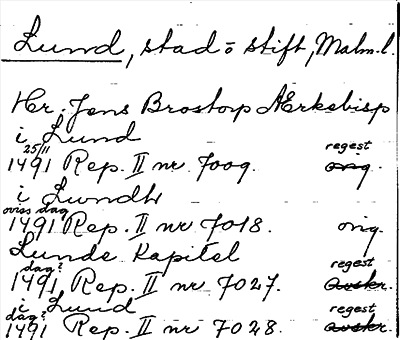 Lund, stad o stift, Malm.l.
Hr. Jens Brostorp Ærkebisp
i Lund
25/11 regest
1491 Rep. II nr 7009. orig.
i Lundh
oviss dag
1491 Rep. II nr 7018. orig.
Lunde Kapitel
dag? regest
1491 Rep. II nr 7027. avskr.
i Lund regest
dag?
1491 Rep. II nr 7028. avskr.